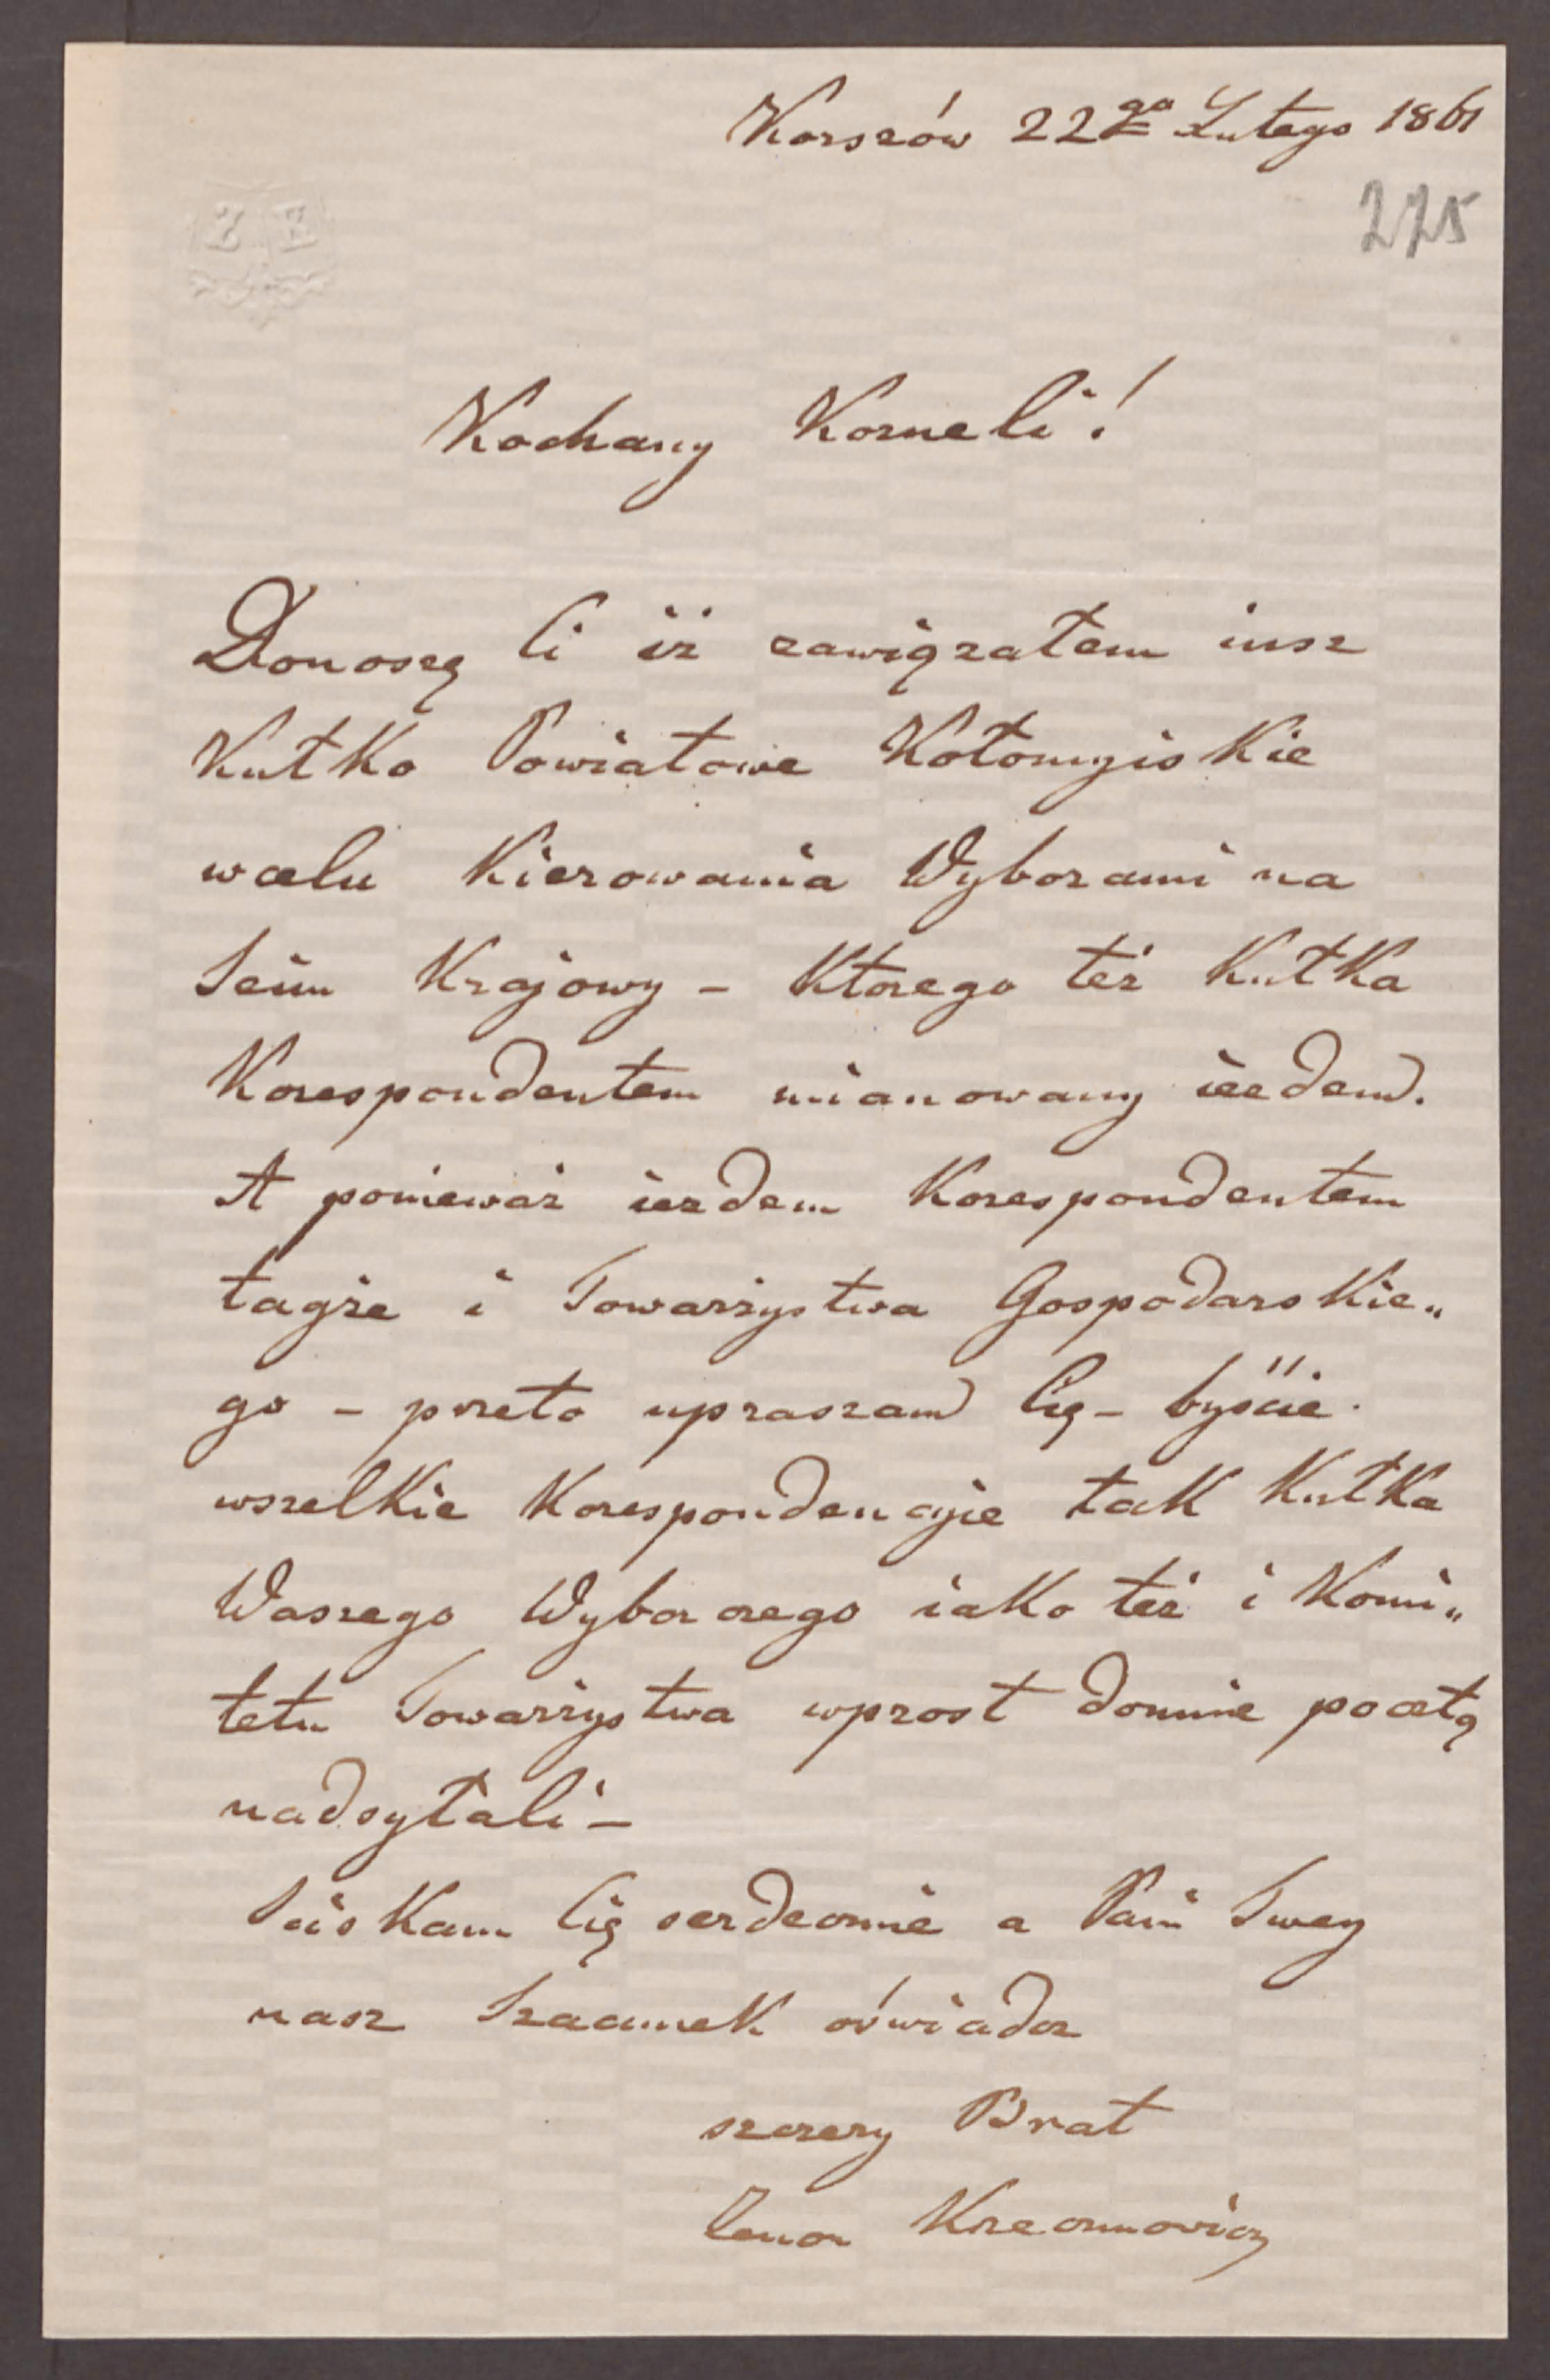 Korszów 22go Lutego 1861
225
Kochany Korneli!
Donoszę Ci iż zawiązałem iusz
Kułko Powiatowe Kołomyiskie
wcelu Kierowania Wyborami na
Seim Krajowy – Ktorego też Kułka
Korespondentem mianowany iezdem.
A ponieważ iezdem Korespondentem
tagże i Towarżystwa Gospodarskie„
go – przeto upraszam Cię – byście
wszelkie Korespondencyie tak Kułka
Waszego Wyborczego iako też i Komi„
tetu Towarżystwa wprost domnie pocztą
nadsyłali –
Sciskam Cię serdecznie a Pani Twey
nasz Szacunek oświadcz
szczery Brat
Zenon Krzeczunowicz